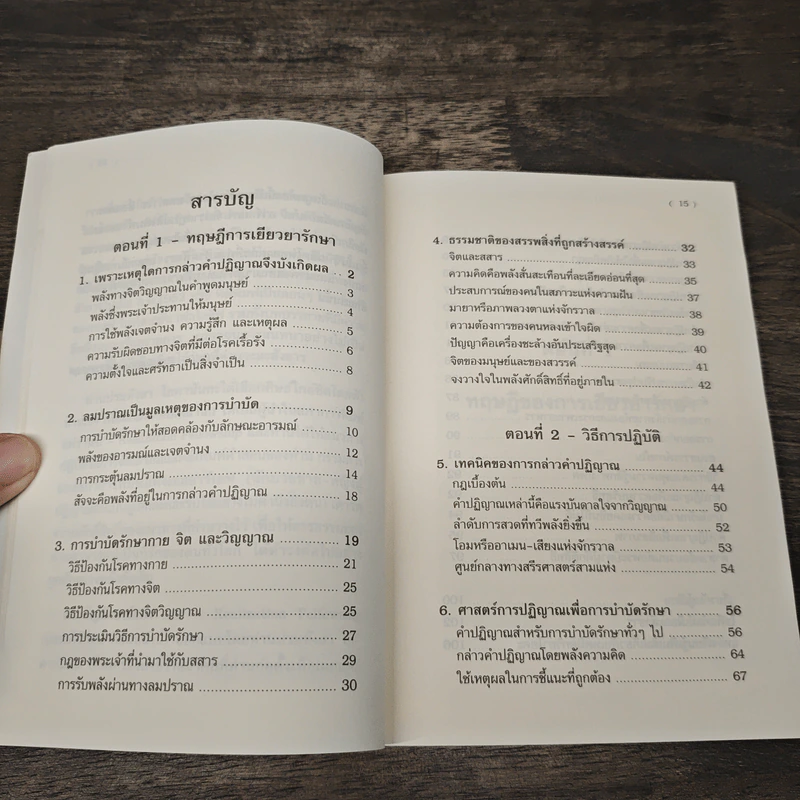 สารบัญ
ตอนที่ 1 - ทฤษฎีการเยียวยารักษา
1. เพราะเหตุใดการกล่าวคำปฏิญาณจึงบังเกิดผล .. 2
พลังทางจิตวิญญาณในคำพูดมนุษย์ .................... 3
พลังซึ่งพระเจ้าประทานให้มนุษย์ ........................ 4
การใช้พลังเจตจำนง ความรู้สึก และเหตุผล ............ 5
ความรับผิดชอบทางจิตที่มีต่อโรคเรื้อรัง ................ 6
ความตั้งใจและศรัทธาเป็นสิ่งจำเป็น .................... 8
2. ลมปราณเป็นมูลเหตุของการบำบัด .................... 9
การบำบัดรักษาให้สอดคล้องกับลักษณะอารมณ์ ........ 10
พลังของอารมณ์และเจตจำนง ........................ 12
การกระตุ้นลมปราณ ................................ 14
สัจจะคือพลังที่อยู่ในการกล่าวคำปฏิญาณ .............. 18
3. การบำบัดรักษากาย จิต และวิญญาณ ................ 19
วิธีป้องกันโรคทางกาย .............................. 21
วิธีป้องกันโรคทางจิต ................................ 25
วิธีป้องกันโรคทางจิตวิญญาณ ........................ 25
การประเมินวิธีการบำบัดรักษา ........................ 27
กฎของพระเจ้าที่นำมาใช้กับสสาร .................... 29
การรับพลังผ่านทางลมปราณ ........................ 30
( 15 )
4. ธรรมชาติของสรรพสิ่งที่ถูกสร้างสรรค์ ................ 32
จิตและสสาร ........................................ 33
ความคิดคือพลังสั่นสะเทือนที่ละเอียดอ่อนที่สุด ........ 35
ประสบการณ์ของคนในสภาวะแห่งความฝัน ............ 37
มายาหรือภาพลวงตาแห่งจักรวาล .................... 38
ความต้องการของคนหลงเข้าใจผิด .................... 39
ปัญญาคือเครื่องชะล้างอันประเสริฐสุด ................ 40
จิตของมนุษย์และของสวรรค์ ........................ 41
จงวางใจในพลังศักดิ์สิทธิ์ที่อยู่ภายใน ................ 42
ตอนที่ 2 - วิธีการปฏิบัติ
5. เทคนิคของการกล่าวคำปฏิญาณ .................... 44
กฎเบื้องต้น ........................................ 44
คำปฏิญาณเหล่านี้คือแรงบันดาลใจจากวิญญาณ ........ 50
ลำดับการสวดที่ทวีพลังยิ่งขึ้น ........................ 52
โอมหรืออาเมน-เสียงแห่งจักรวาล .................... 53
ศูนย์กลางทางสรีรศาสตร์สามแห่ง .................... 54
6. ศาสตร์การปฏิญาณเพื่อการบำบัดรักษา ............ 56
คำปฏิญาณสำหรับการบำบัดรักษาทั่วๆ ไป ............ 56
กล่าวคำปฏิญาณโดยพลังความคิด .................... 64
ใช้เหตุผลในการชี้แนะที่ถูกต้อง ........................ 67